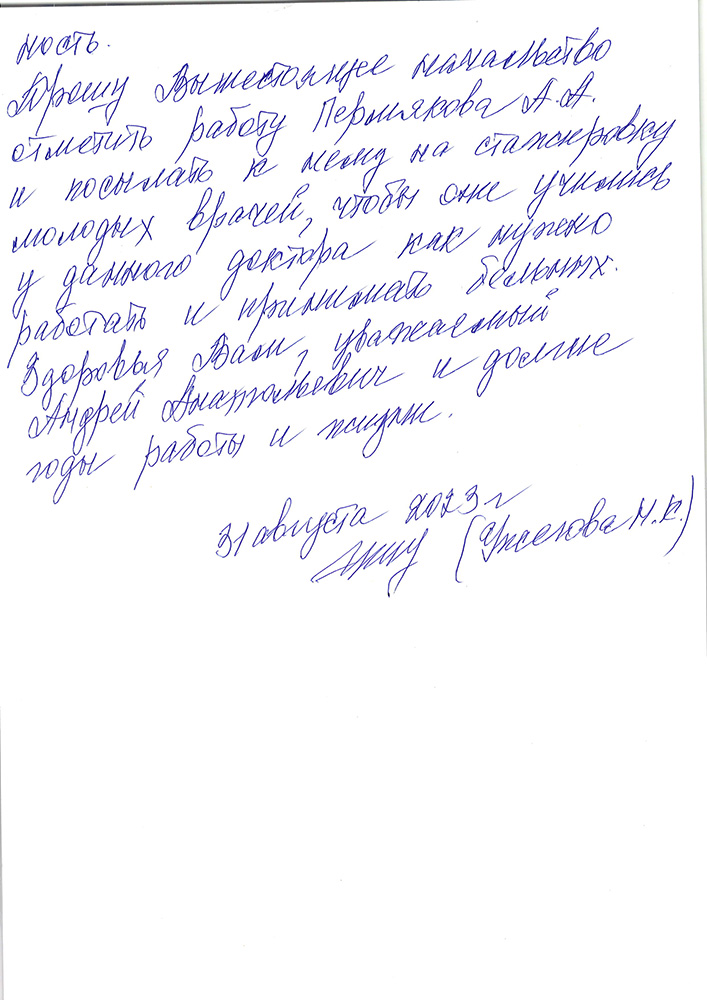 ность.
Прошу Вышестоящее начальство
отметить работу Пермякова А.А.
и посылать к нему на стажировку
молодых врачей, чтобы они учились
у данного доктора как нужно
работать и принимать больных.
Здоровья Вам, уважаемый
Андрей Анатольевич и долгие
годы работы и жизни.
31 августа 2023 г